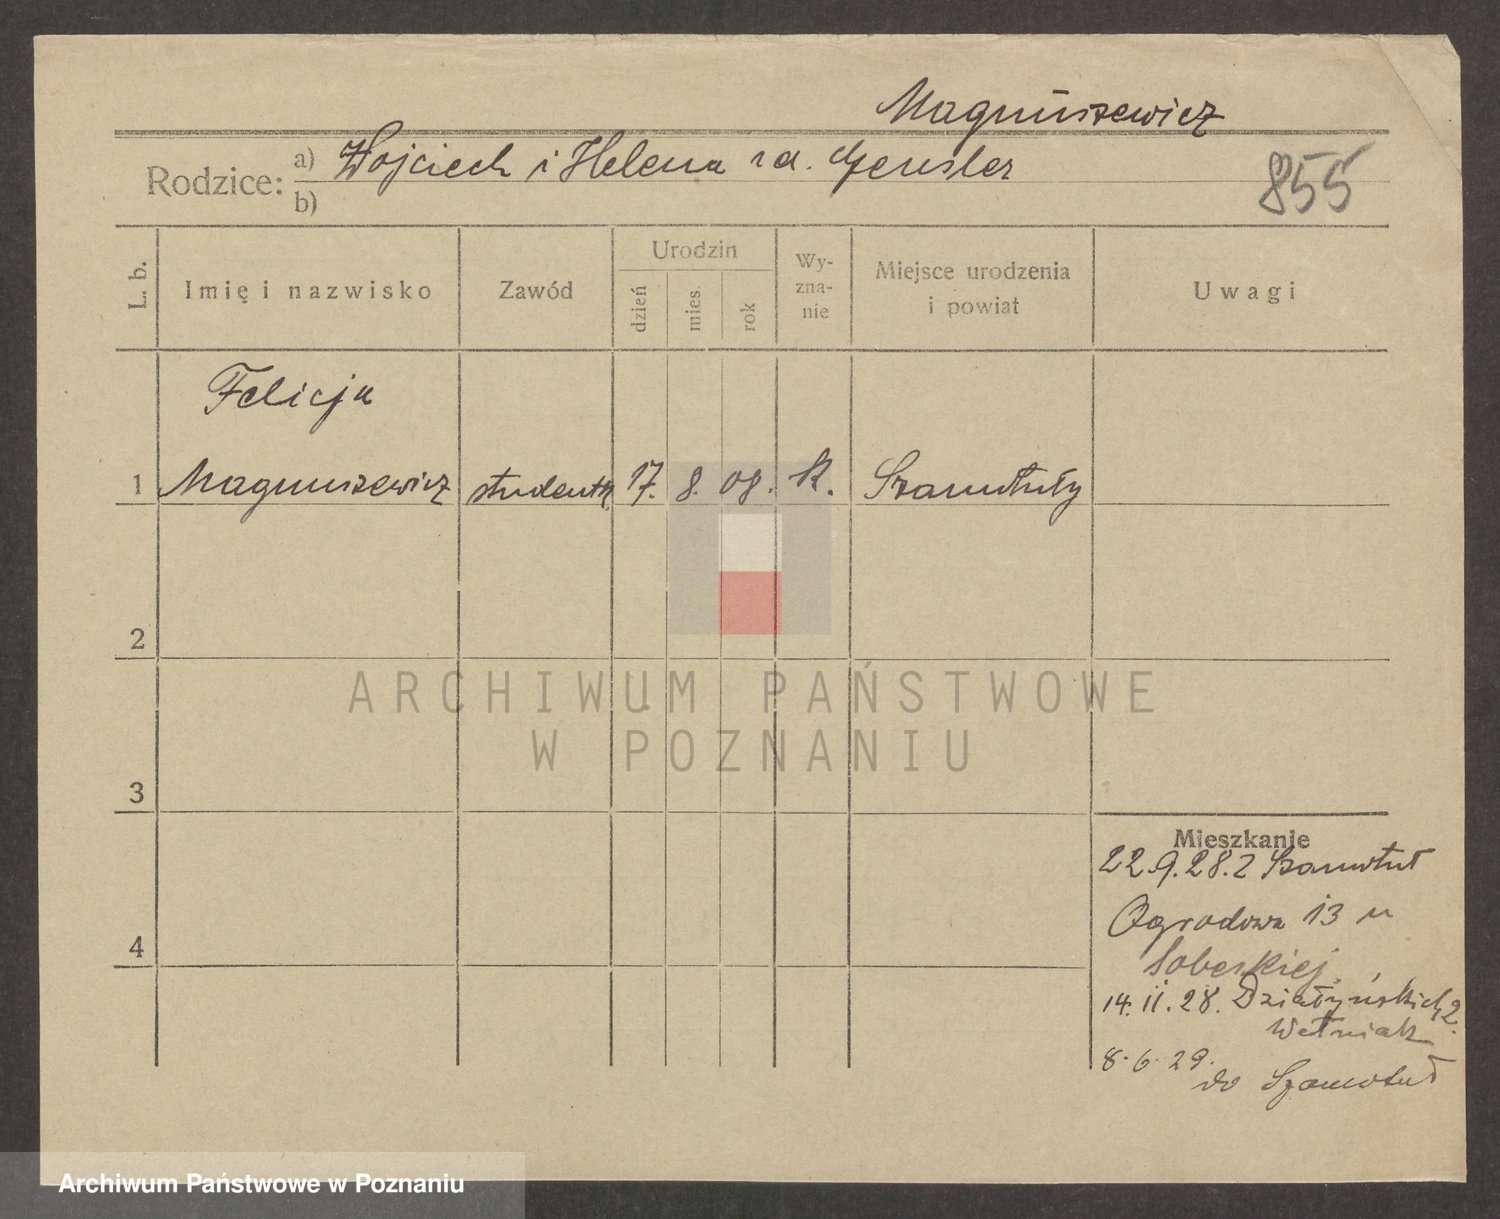 Magnuszewicz
Rodzice: a) Wojciech i Helena r d. Gensler
b)
855
L. b.
Imię i nazwisko
Zawód
Urodzin
dzień
mies.
rok
Wy-
zna-
nie
Miejsce urodzenia
i powiat
Uwagi
Felicja
1 Magnuszewicz studentk 17. 8. 08. k. Szamotuły
2
3
4
ARCHIWUM PAŃSTWOWE
W POZNANIU
Mieszkanie
22.9.28. z Szamotuł
Ogrodowa 13 u
Sobeskiej
14.11.28. Działyńskich 2.
Wełniak
8.6.29.
do Szamotuł
Archiwum Państwowe w Poznaniu